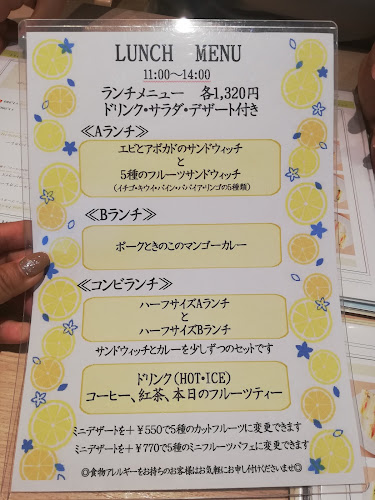 LUNCH MENU
11:00~14:00
ランチメニュー 各1,320円
ドリンク・サラダ・デザート付き
≪Aランチ≫
エビとアボカドのサンドウィッチ
と
5種のフルーツサンドウィッチ
(イチゴ・キウイ・パイン・パパイア・リンゴの5種類)
≪Bランチ≫
ポークときのこのマンゴーカレー
≪コンビランチ≫
ハーフサイズAランチ
と
ハーフサイズBランチ
サンドウィッチとカレーを少しずつのセットです
ドリンク(HOT・ICE)
コーヒー、紅茶、本日のフルーツティー
ミニデザートを+¥550で5種のカットフルーツに変更できます
ミニデザートを+¥770で5種のミニフルーツパフェに変更できます
◎食物アレルギーをお持ちのお客様はお気軽にお申し付けくださいませ◎